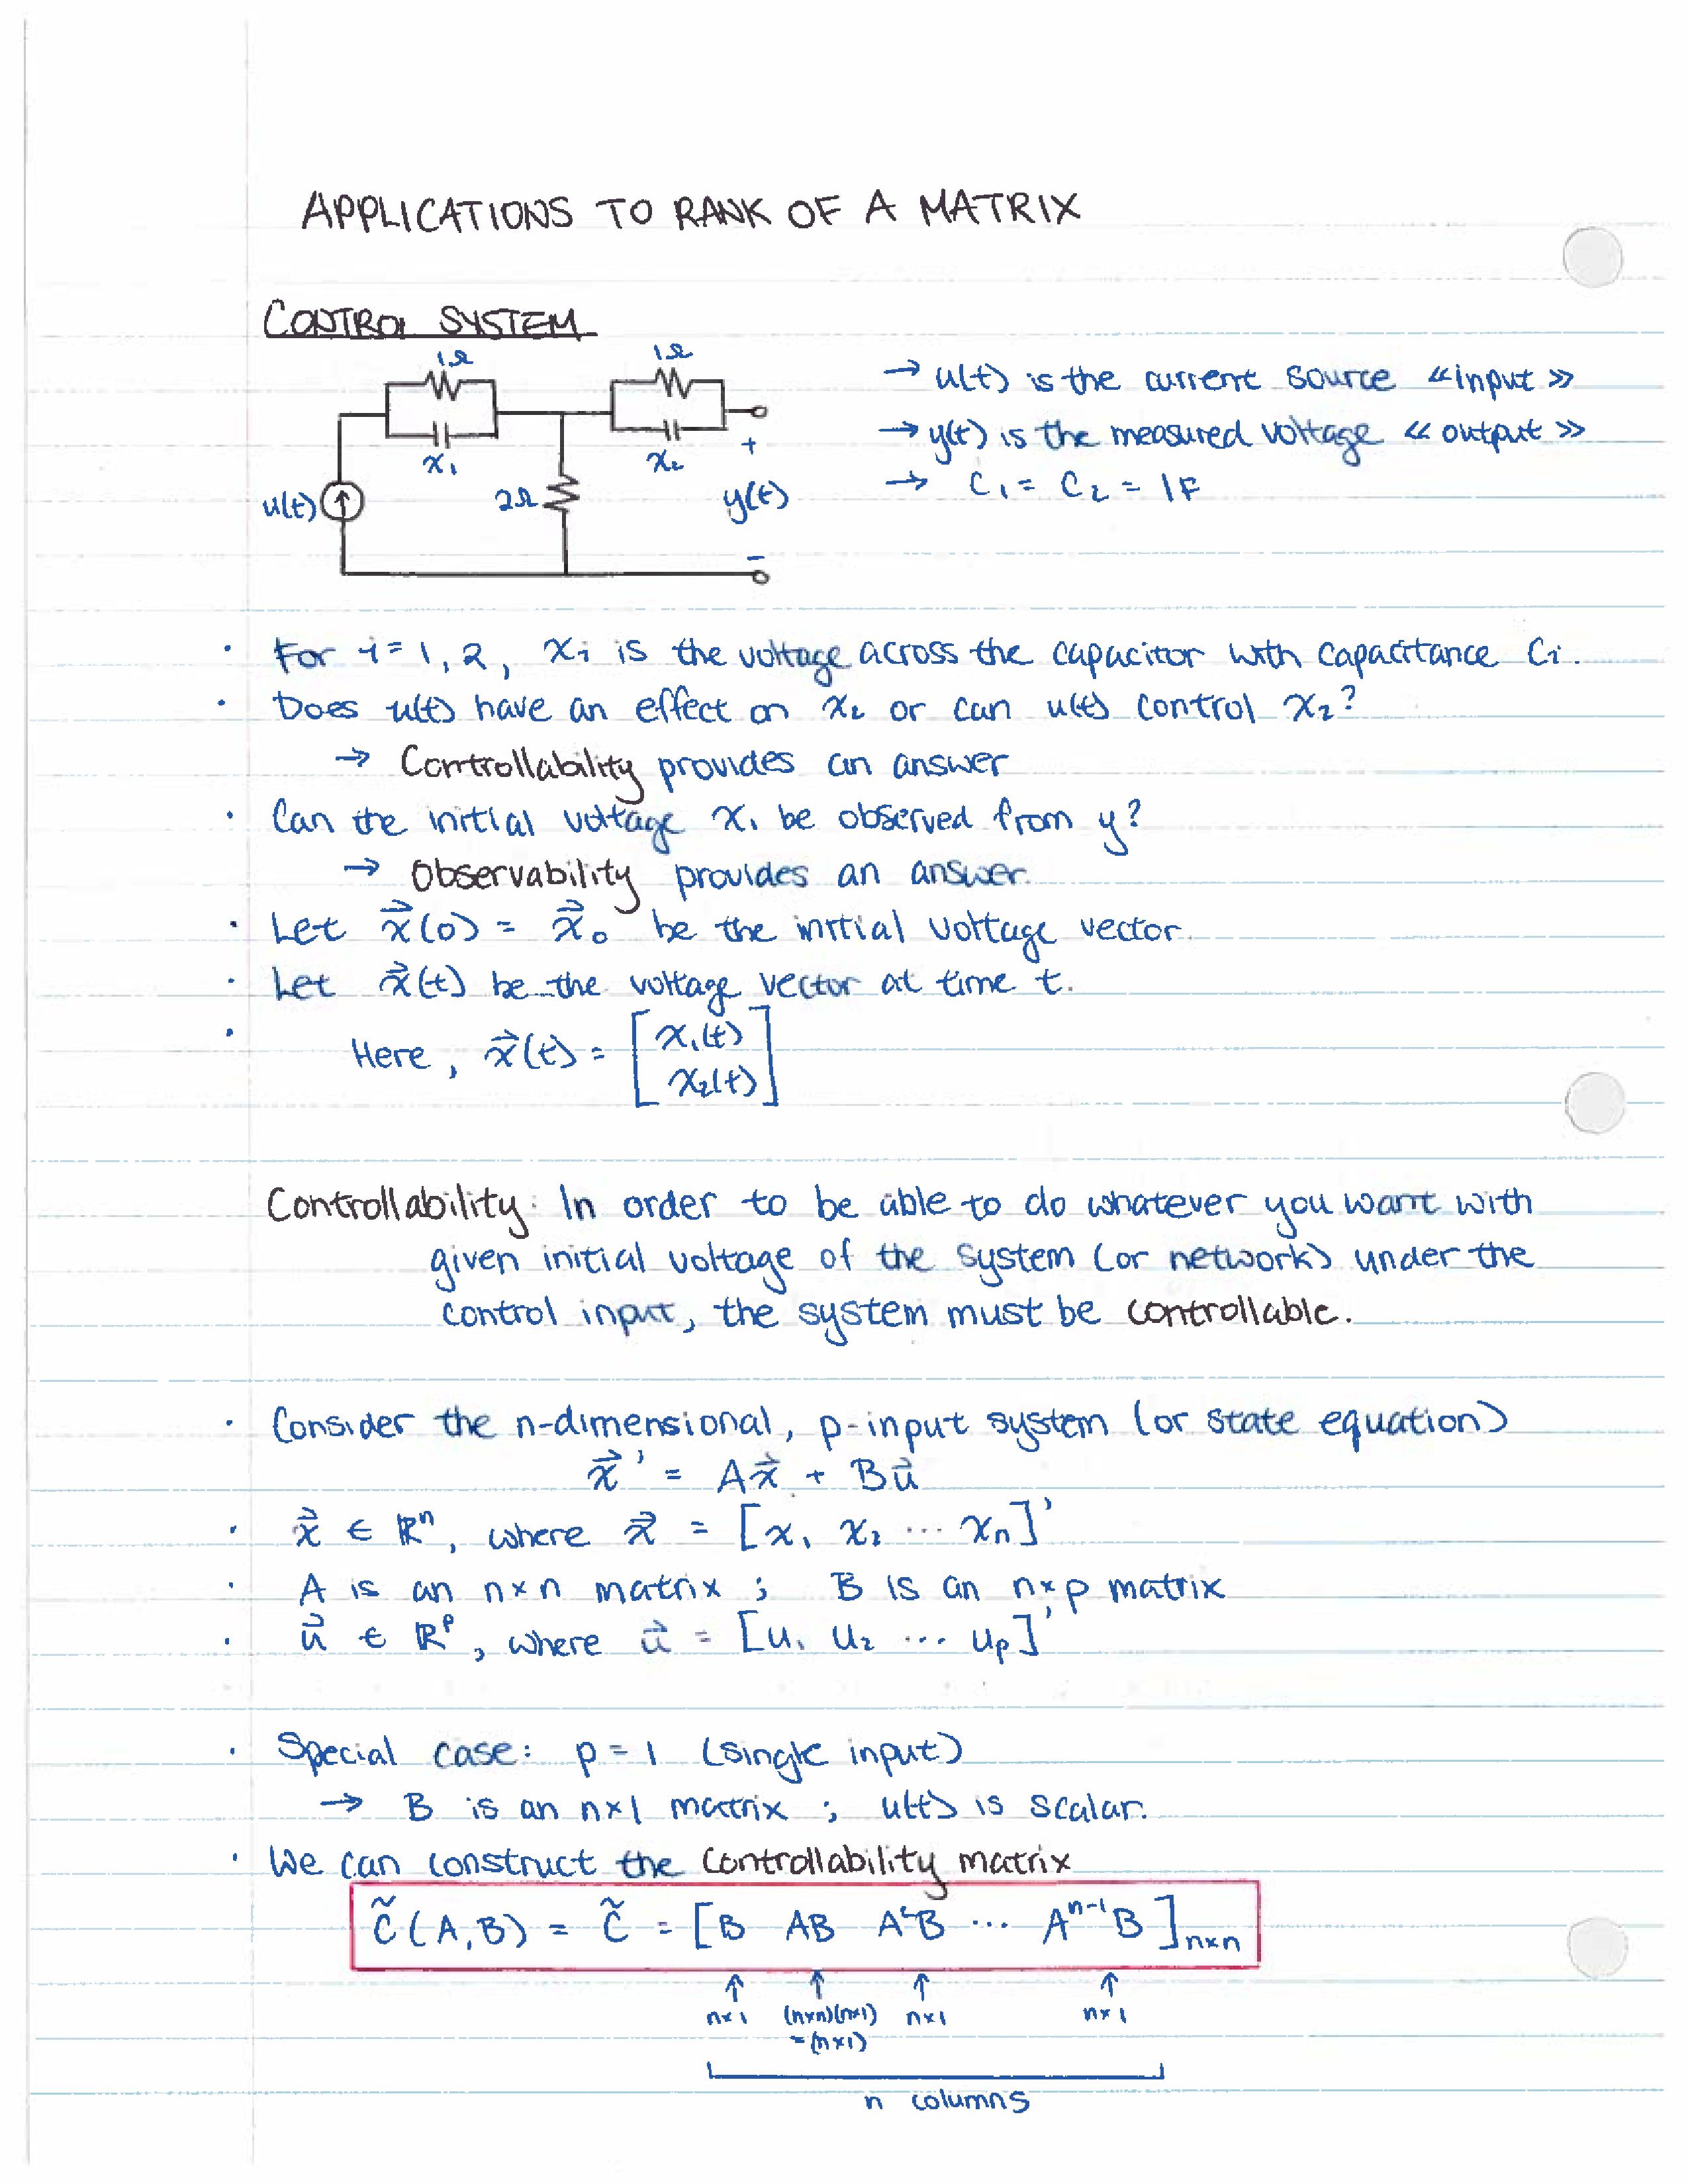 APPLICATIONS TO RANK OF A MATRIX
CONTROL SYSTEM
1Ω
1Ω
x₁
x₂
+
u(t)
2Ω
y(t)
-
→ u(t) is the current source «input»
→ y(t) is the measured voltage «output»
→ C₁ = C₂ = 1F
· For i = 1, 2, xᵢ is the voltage across the capacitor with capacitance Cᵢ.
· Does u(t) have an effect on x₂ or can u(t) control x₂?
→ Controllability provides an answer
· Can the initial voltage x₁ be observed from y?
→ Observability provides an answer.
· Let x⃗(0) = x⃗₀ be the initial voltage vector.
· Let x⃗(t) be the voltage vector at time t.
· Here, x⃗(t) = [x₁(t)
x₂(t)]
Controllability: In order to be able to do whatever you want with
given initial voltage of the system (or network) under the
control input, the system must be controllable.
· Consider the n-dimensional, p-input system (or state equation)
x⃗' = Ax⃗ + Bu⃗
· x⃗ ∈ ℝⁿ, where x⃗ = [x₁ x₂ ... xₙ]'
· A is an n×n matrix ; B is an n×p matrix
· u⃗ ∈ ℝᵖ, where u⃗ = [u₁ u₂ ... uₚ]'
· Special case: p = 1 (single input)
→ B is an n×1 matrix ; u(t) is scalar.
· We can construct the controllability matrix
C̃(A,B) = C̃ = [B AB A²B ... Aⁿ⁻¹B]ₙₓₙ
↑ ↑ ↑ ↑
n×1 (n×n)(n×1) n×1 n×1
=(n×1)
n columns